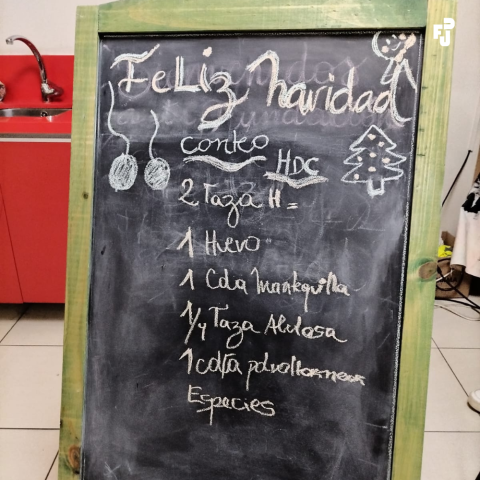 FeLiz navidad
conteo
HDC
2 Taza H=
1 Huevo
1 Cda Mantequilla
1/4 Taza Alulosa
1 cdta polvo Hornear
Especies